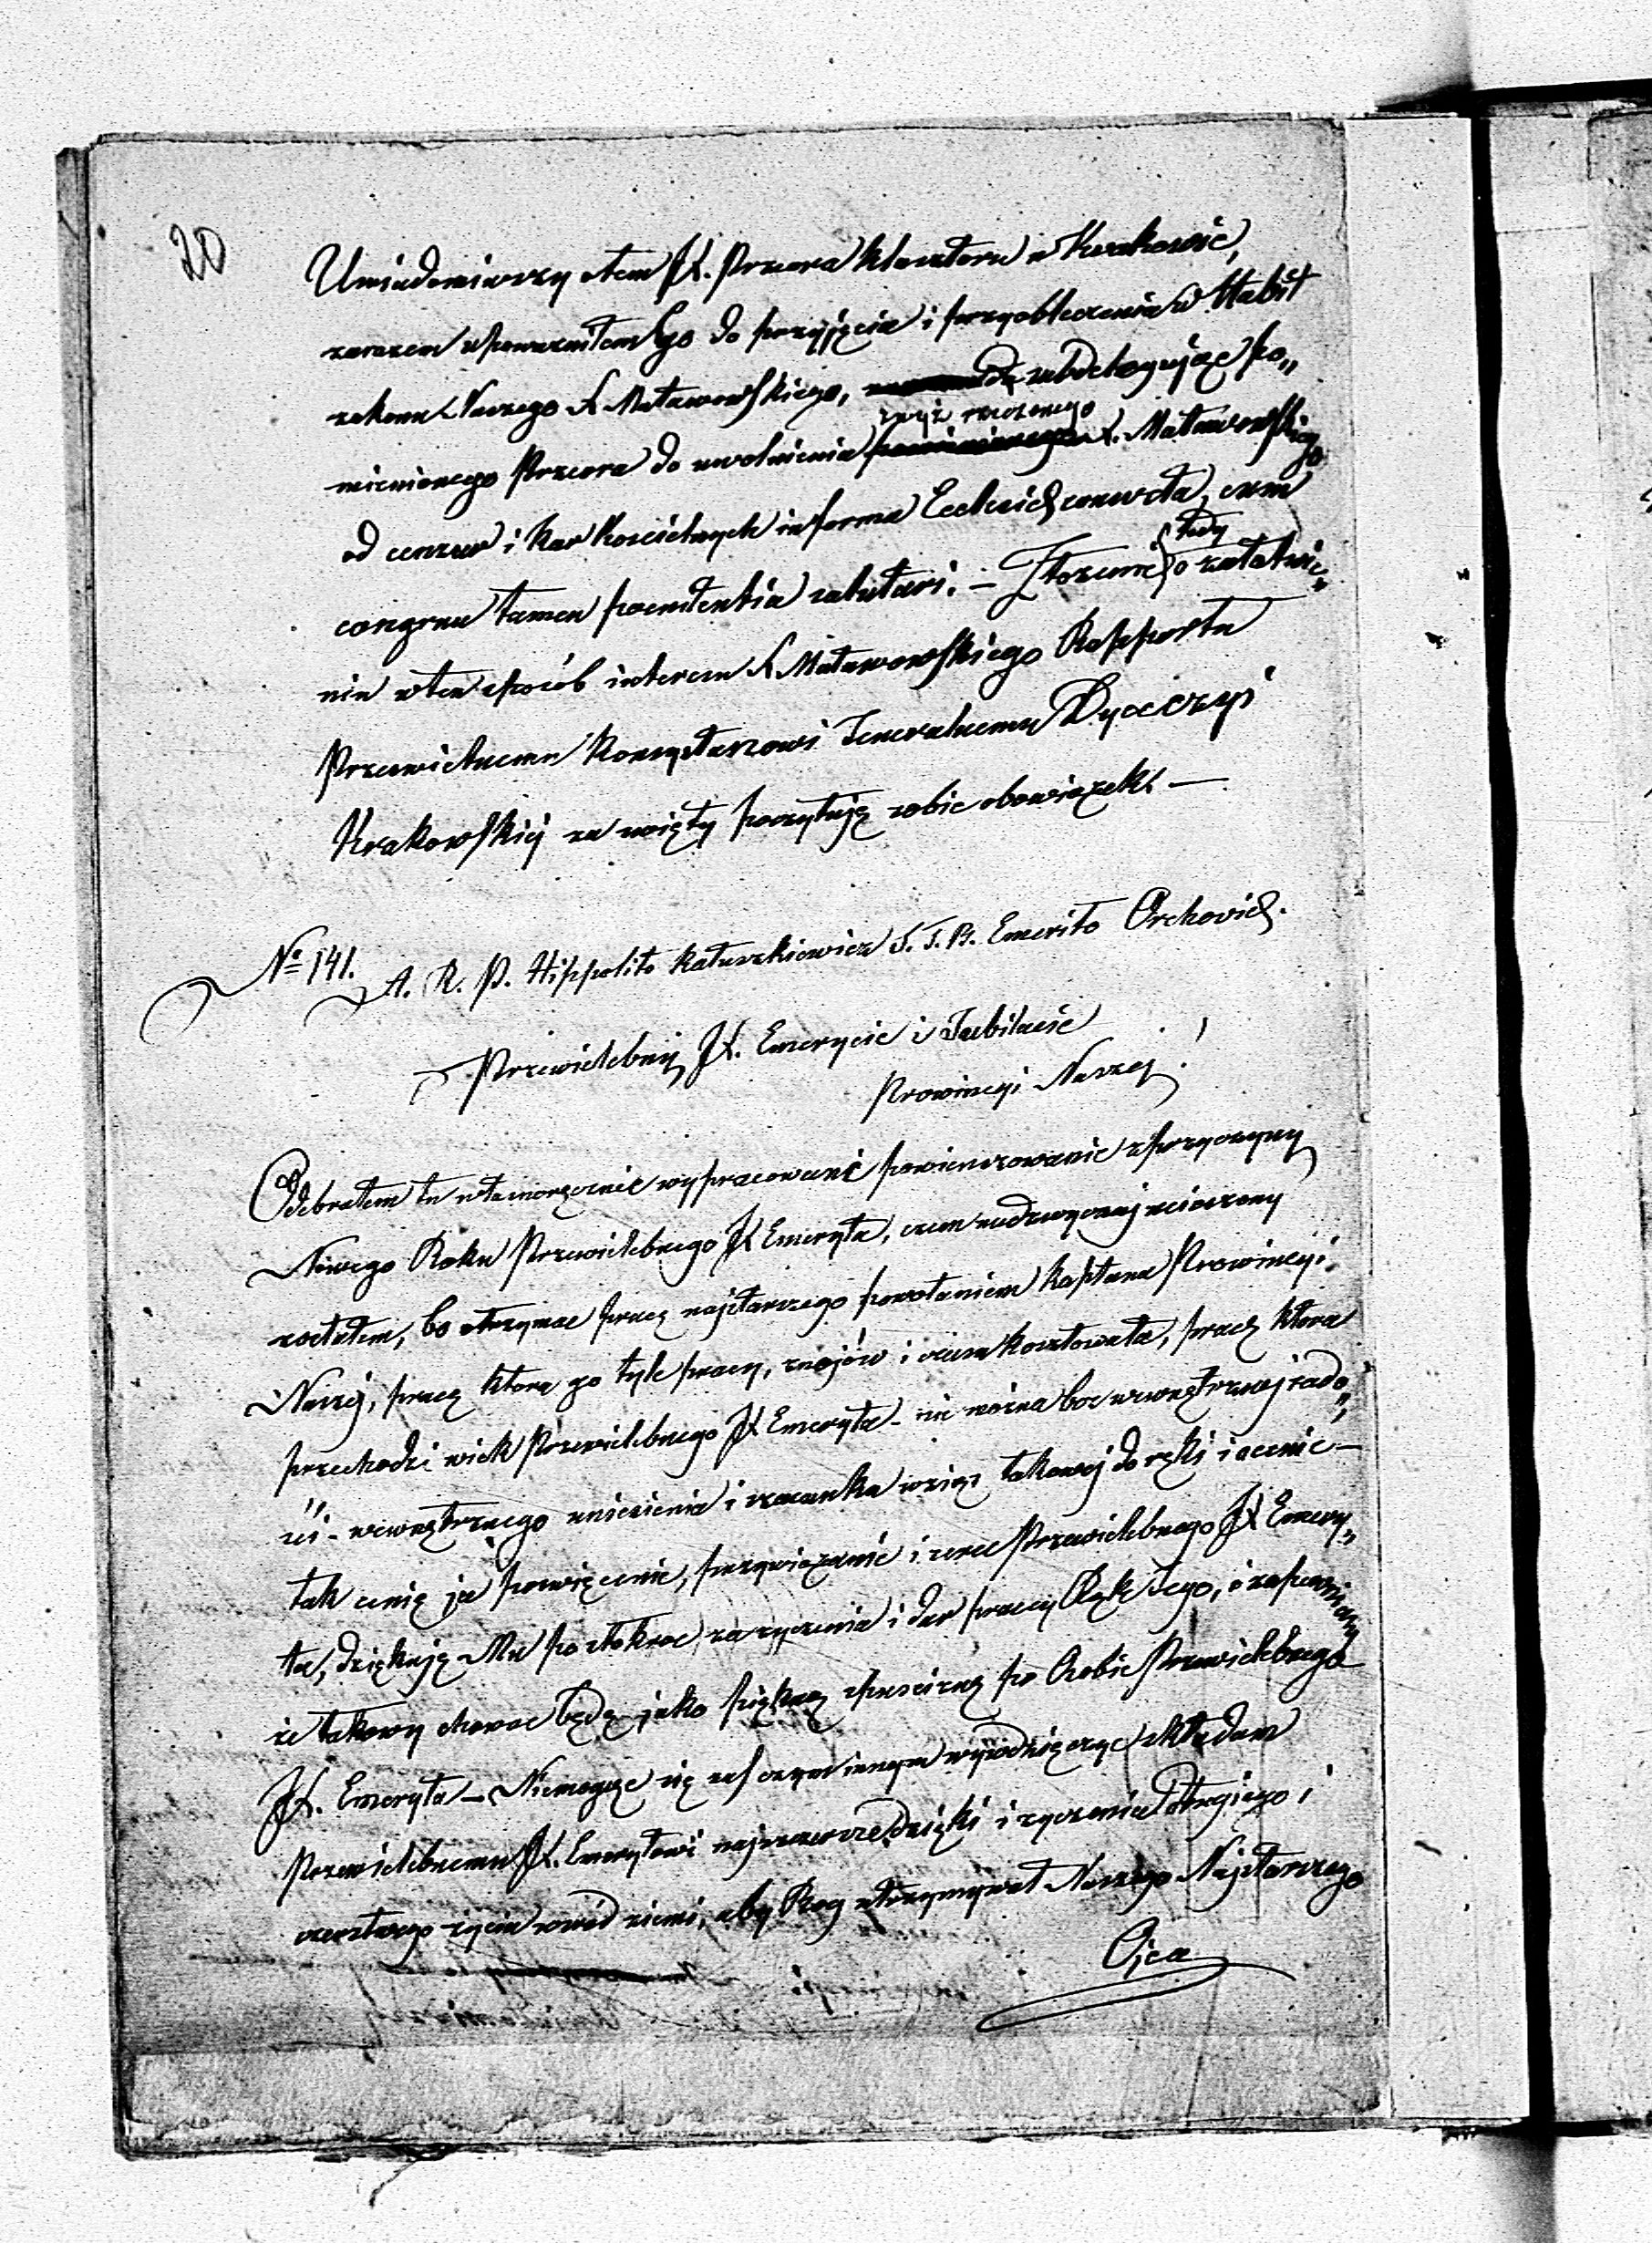 20
Uwiadomiwszy otem JX. Przeora klasztoru w Krakowie,
zarazem upoważniłem Go do przyjęcia i przyobleczenia w Habit
zakonu Naszego X Matawowskiego, subdelegując po„
mienionego Przeora do uwolnienia zwyż rzeczonego X. Matawowskiego
od cenzur i kar kościelnych in forma Ecclesiae consueta, cum
congrua tamen poenitentia salutari. — Złożenie tedy o załatwie„
niu w ten sposób interesu X Matawowskiego Rapportu
Prześwietnemu Konsystorzowi Jeneralnemu Dyecezyi
Krakowskiej za święty poczytuję sobie obowiązek. —
No 141. A. R. P. Hippolito Kałuszkiewicz S. T. B. Emerito
Przewielebny JX. Emerycie i Jubilacie
Prowincyi Naszey!
Odebrałem tu własnoręcznie wypracowane powinszowanie z przyczyny
Nowego Roku Przewielebnego JX Emeryta, czem nadzwyczaj ucieszony
zostałem, bo otrzymać pracę najstarszego powołaniem kapłana Prowincyi
Naszéj, pracę która go tyle pracy, znojów i czasu kosztowała, pracę która
przechodzi wiek Przewielebnego JX Emeryta – nie można bez wewnętrznej rado„
ści – wewnętrznego uniesienia i szacunku wziąź takowej do ręki i ocenić —
tak cenię ja poswięcenie, przywiązanie i serce Przewielebnego JX Emery„
ta, dziękuję Mu po stokroć za życzenia i dar pracy Rąk Jego, i zapewniam
że takowy chować będę jako piękną spuściznę po Osobie Przewielebnego
JX. Emeryta — Niemogąc się zaś czym innym wywdzięczyć składam
Przewielebnemu JX. Emerytowi najszczersze dzięki i życzenia Długiego i
czerstwego życia wśród ziemi, aby Bog utrzymywał Naszego Najstarszego
Ojca